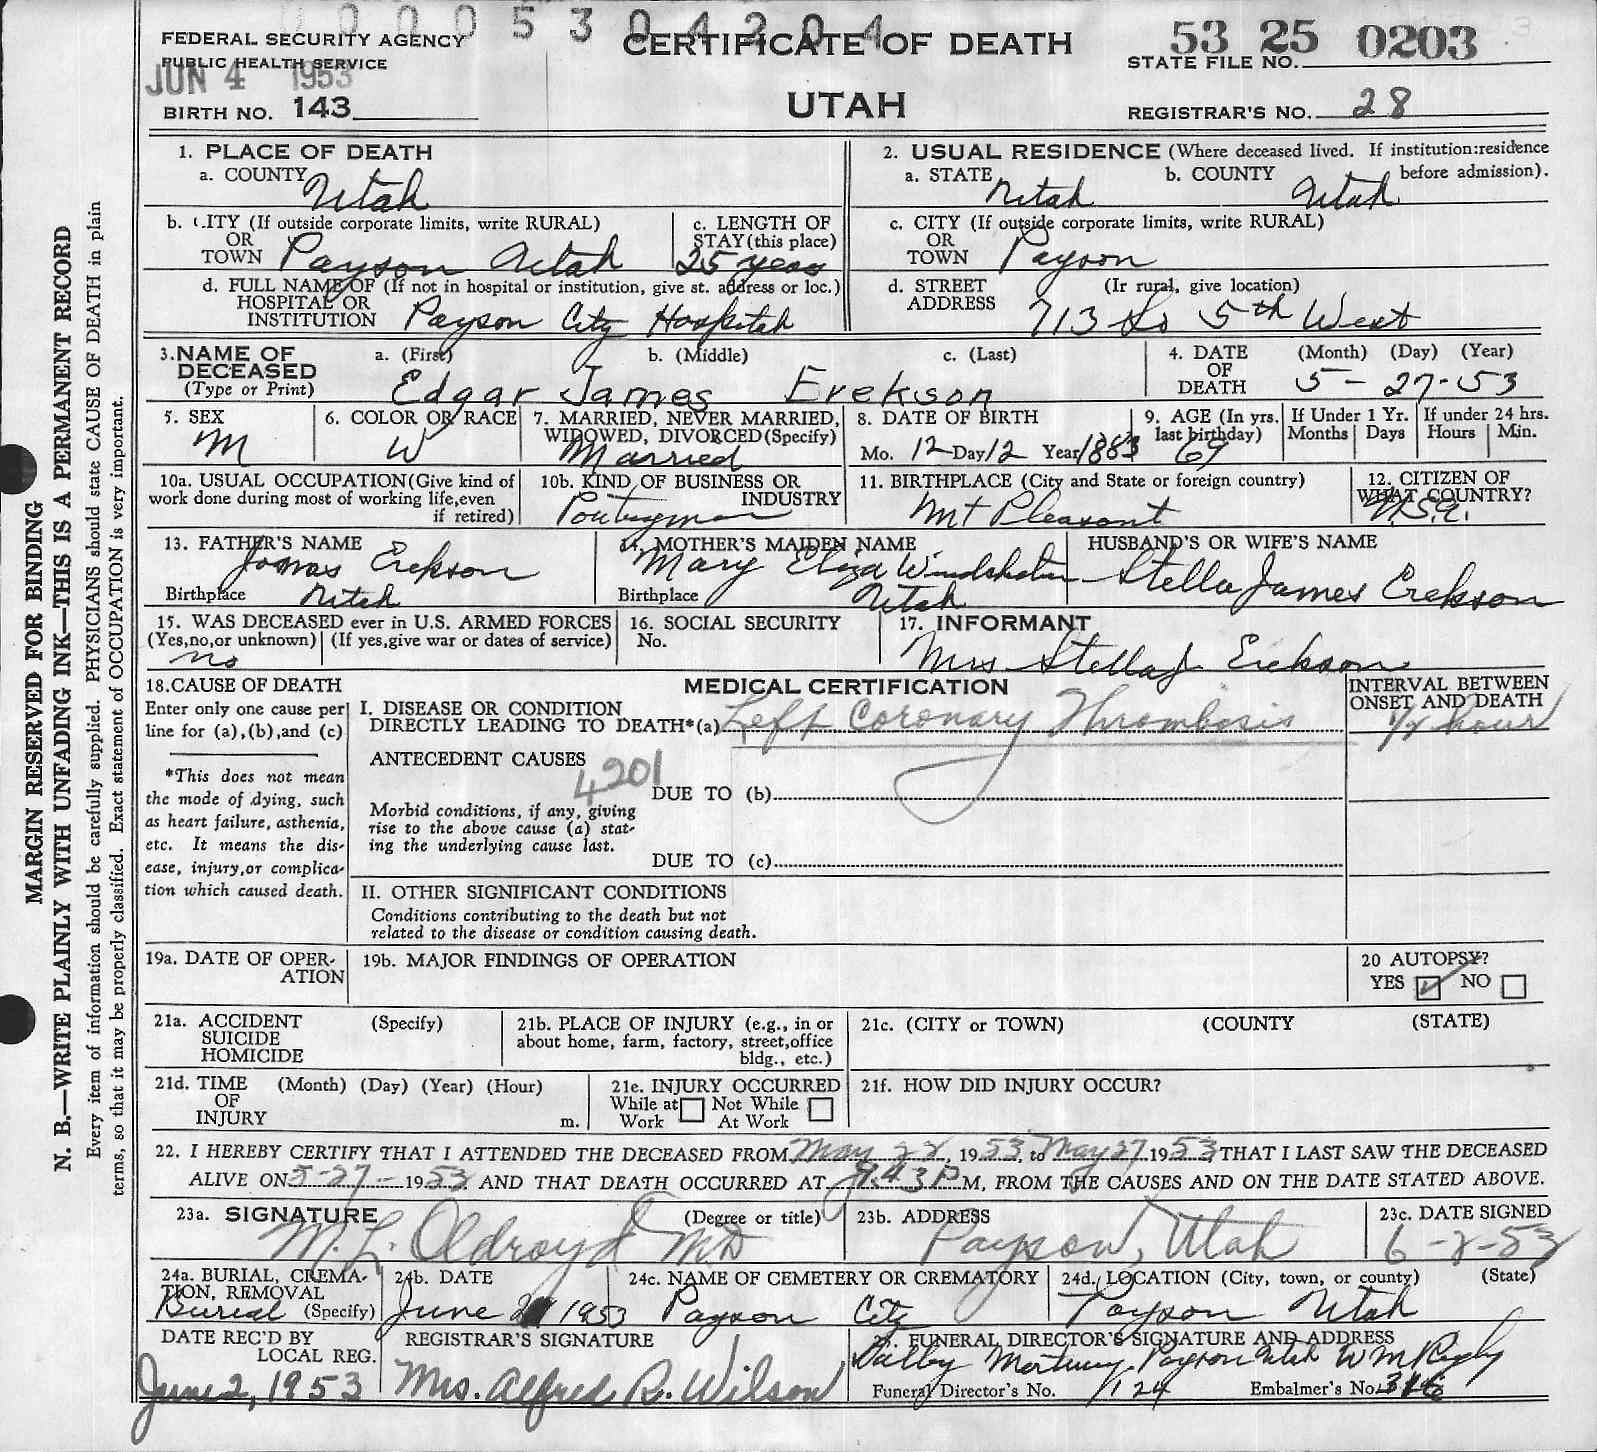 00005304204
FEDERAL SECURITY AGENCY
PUBLIC HEALTH SERVICE
JUN 4 1953
BIRTH NO. 143
CERTIFICATE OF DEATH
UTAH
53 25 0203
STATE FILE NO.
REGISTRAR'S NO. 28
MARGIN RESERVED FOR BINDING
N. B.—WRITE PLAINLY WITH UNFADING INK—THIS IS A PERMANENT RECORD
Every item of information should be carefully supplied. PHYSICIANS should state CAUSE OF DEATH in plain
terms, so that it may be properly classified. Exact statement of OCCUPATION is very important.
1. PLACE OF DEATH
a. COUNTY Utah
2. USUAL RESIDENCE (Where deceased lived. If institution:residence
before admission).
a. STATE Utah b. COUNTY Utah
b. CITY (If outside corporate limits, write RURAL)
OR
TOWN Payson Utah
c. LENGTH OF
STAY (this place)
25 years
c. CITY (If outside corporate limits, write RURAL)
OR
TOWN Payson
d. FULL NAME OF (If not in hospital or institution, give st. address or loc.)
HOSPITAL OR
INSTITUTION Payson City Hospital
d. STREET (Ir rural, give location)
ADDRESS 713 So 5th West
3. NAME OF
DECEASED
(Type or Print)
a. (First) b. (Middle) c. (Last)
Edgar James Erekson
4. DATE
OF
DEATH
(Month) (Day) (Year)
5-27-53
5. SEX
M
6. COLOR OR RACE
W
7. MARRIED, NEVER MARRIED,
WIDOWED, DIVORCED (Specify)
Married
8. DATE OF BIRTH
Mo. 12 Day 12 Year 1883
9. AGE (In yrs.
last birthday)
69
If Under 1 Yr.
Months Days
If under 24 hrs.
Hours Min.
10a. USUAL OCCUPATION (Give kind of
work done during most of working life,even
if retired)
10b. KIND OF BUSINESS OR
INDUSTRY
Poultryman
11. BIRTHPLACE (City and State or foreign country)
Mt Pleasant
12. CITIZEN OF
WHAT COUNTRY?
U.S.A.
13. FATHER'S NAME
Jonas Erekson
Birthplace Utah
14. MOTHER'S MAIDEN NAME
Mary Eliza
Birthplace Utah
HUSBAND'S OR WIFE'S NAME
Stella James Erekson
15. WAS DECEASED ever in U.S. ARMED FORCES
(Yes,no,or unknown) (If yes,give war or dates of service)
no
16. SOCIAL SECURITY
No.
17. INFORMANT
Mrs Stella J Erekson
18. CAUSE OF DEATH
Enter only one cause per
line for (a),(b),and (c)
*This does not mean
the mode of dying, such
as heart failure, asthenia,
etc. It means the dis-
ease, injury,or complica-
tion which caused death.
MEDICAL CERTIFICATION
I. DISEASE OR CONDITION
DIRECTLY LEADING TO DEATH*(a) Left Coronary Thrombosis
INTERVAL BETWEEN
ONSET AND DEATH
1/2 hour
ANTECEDENT CAUSES
4201
DUE TO (b)
Morbid conditions, if any, giving
rise to the above cause (a) stat-
ing the underlying cause last.
DUE TO (c)
II. OTHER SIGNIFICANT CONDITIONS
Conditions contributing to the death but not
related to the disease or condition causing death.
19a. DATE OF OPER-
ATION
19b. MAJOR FINDINGS OF OPERATION
20 AUTOPSY?
YES NO
21a. ACCIDENT (Specify)
SUICIDE
HOMICIDE
21b. PLACE OF INJURY (e.g., in or
about home, farm, factory, street,office
bldg., etc.)
21c. (CITY or TOWN) (COUNTY (STATE)
21d. TIME (Month) (Day) (Year) (Hour)
OF
INJURY m.
21e. INJURY OCCURRED
While at Not While
Work At Work
21f. HOW DID INJURY OCCUR?
22. I HEREBY CERTIFY THAT I ATTENDED THE DECEASED FROM May 22, 1953, to May 27 1953, THAT I LAST SAW THE DECEASED
ALIVE ON 5-27- 1953 AND THAT DEATH OCCURRED AT 9.43 P M, FROM THE CAUSES AND ON THE DATE STATED ABOVE.
23a. SIGNATURE (Degree or title)
M. L. Oldroyd MD
23b. ADDRESS
Payson, Utah
23c. DATE SIGNED
6-2-53
24a. BURIAL, CREMA-
TION, REMOVAL
Burial (Specify)
24b. DATE
June 1953
24c. NAME OF CEMETERY OR CREMATORY
Payson City
24d. LOCATION (City, town, or county) (State)
Payson Utah
DATE REC'D BY
LOCAL REG.
June 2, 1953
REGISTRAR'S SIGNATURE
Mrs. Alfred R. Wilson
FUNERAL DIRECTOR'S SIGNATURE AND ADDRESS
Mortuary Payson Utah
Funeral Director's No. 124 Embalmer's No.